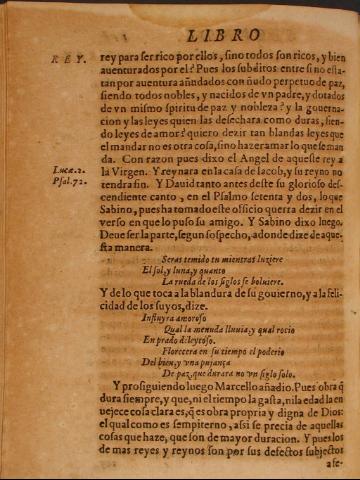 LIBRO
REY.
rey para ser rico por ellos, sino todos son ricos, y bien
auenturados por el? Pues los subditos entre si no esta-
tan por auentura añudados con ñudo perpetuo de paz,
siendo todos nobles, y nacidos de vn padre, y dotados
de vn mismo spiritu de paz y nobleza? y la gouerna-
cion y las leyes quien las desechara como duras, sien-
do leyes de amor? quiero dezir tan blandas leyes que
el mandar no es otra cosa, sino hazer amar lo que se man
da. Con razon pues dixo el Angel de aqueste rey a
Lucæ.2.
la Virgen. Y reynara en la casa de Iacob, y su reyno no
Psal.72.
tendra fin. Y Dauid tanto antes deste su glorioso des-
cendiente canto, en el Psalmo setenta y dos, lo que
Sabino, pues ha tomado este officio querra dezir en el
verso en que lo puso su amigo. Y Sabino dixo luego.
Deue ser la parte, segun sospecho, adonde dize de aque-
sta manera.
Seras temido tu mientras luziere
El sol, y luna, y quanto
La rueda de los siglos se boluiere.
Y de lo que toca a la blandura de su gouierno, y a la feli-
cidad de los suyos, dize.
Influyra amoroso
Qual la menuda lluuia, y qual rocio
En prado deleytoso.
Florecera en su tiempo el poderio
Del bien, y vna pujança
De paz, que durara no vn siglo solo.
Y prosiguiendo luego Marcello añadio. Pues obra q̃
dura siempre, y que, ni el tiempo la gasta, ni la edad la en
uejece cosa clara es, q̃ es obra propria y digna de Dios:
el qual como es sempiterno, assi se precia de aquellas
cosas que haze, que son de mayor duracion. Y pues los
de mas reyes y reynos son por sus defectos subjectos
a fe-